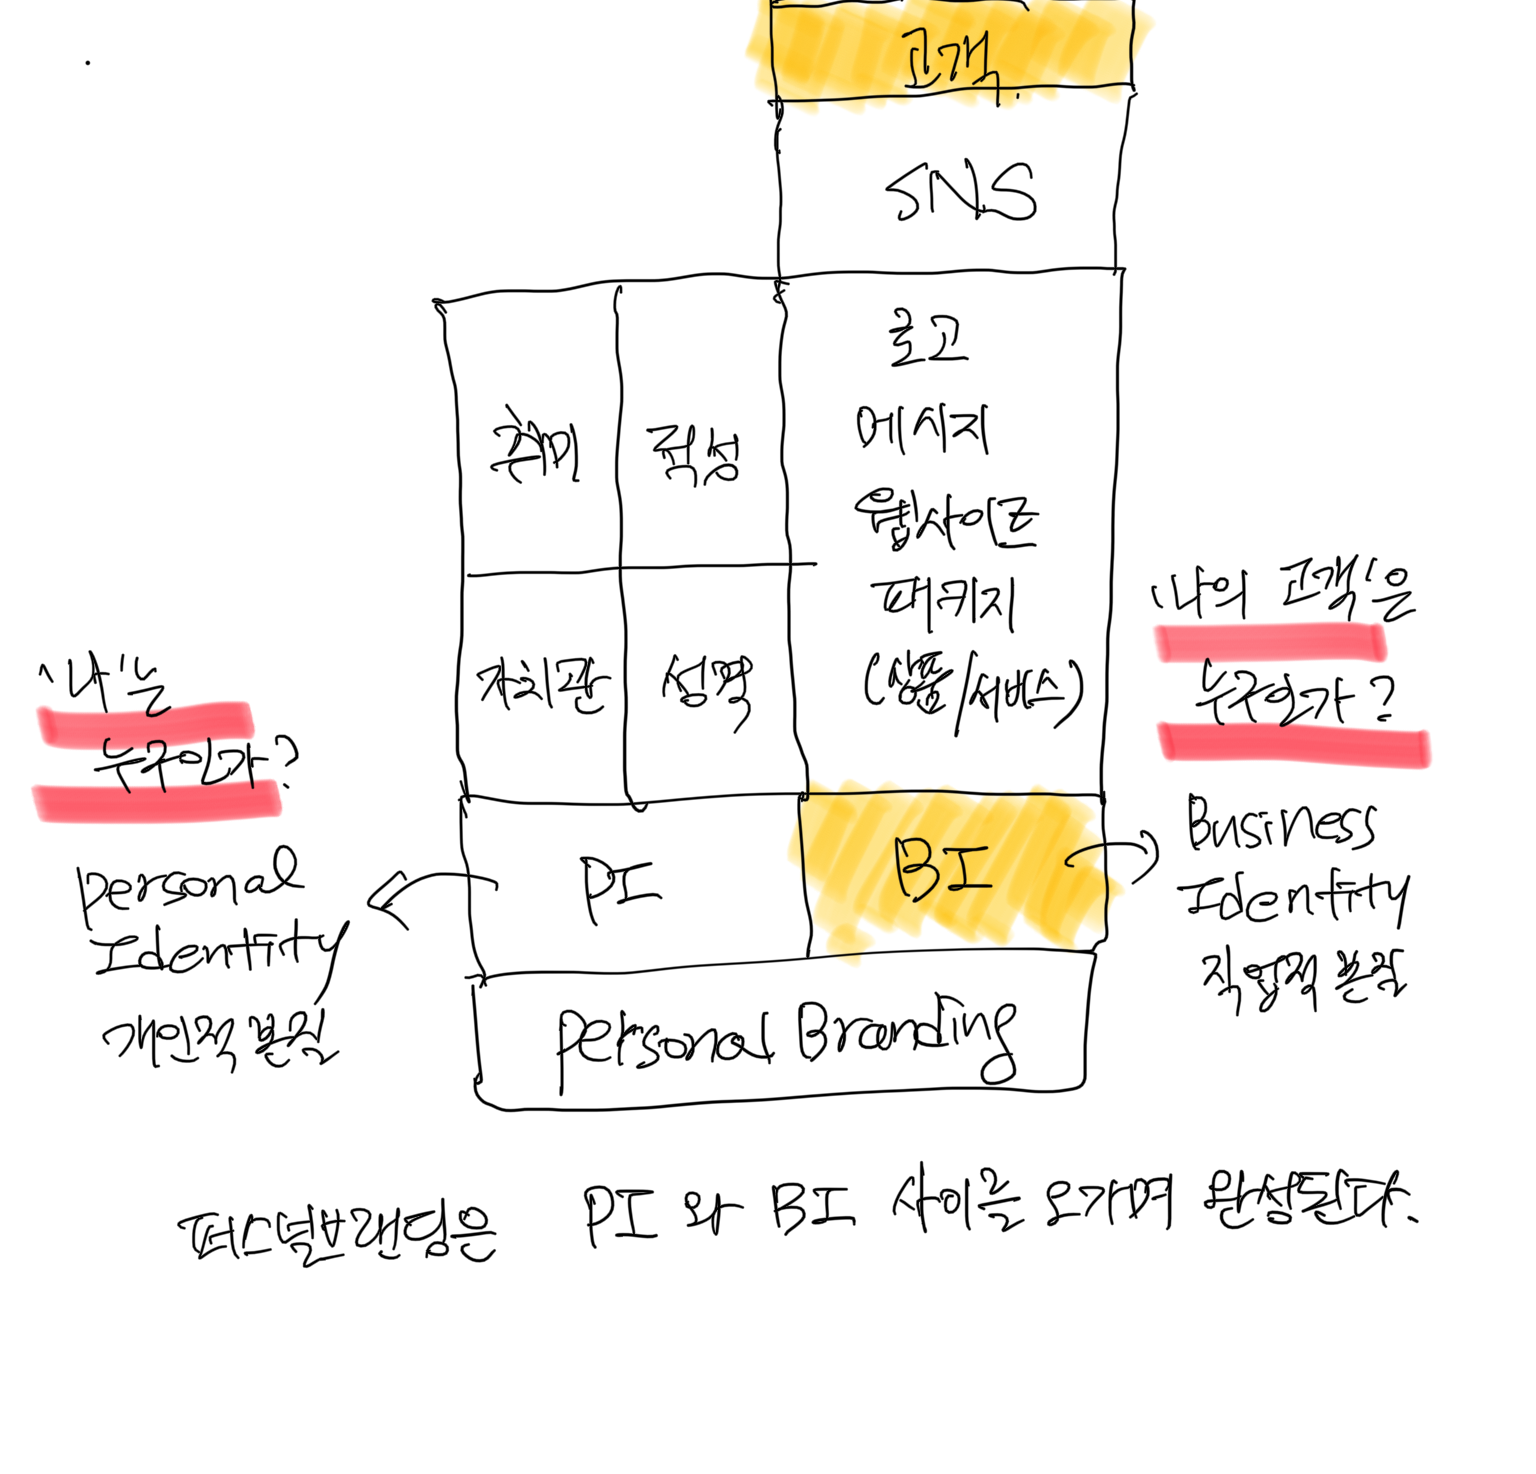 고객
SNS
로고
메시지
웹사이트
패키지
(상품/서비스)
취미
적성
가치관
성격
'나'는
누구인가?
Personal
Identity
개인적 본질
PI
BI
'나의 고객'은
누구인가?
Business
Identity
직업적 본질
Personal Branding
퍼스널브랜딩은 PI 와 BI 사이를 오가며 완성된다.